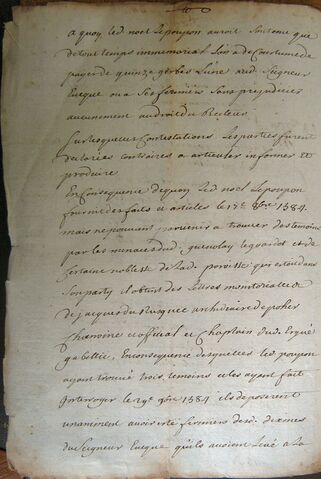 a quoy led noel Lepoupon auroit soutenu que
de tout temps immemorial Lon a de Coustume de
payer de quinze gerbes L'une aud. Seigneur
Eveque ou a Ses fermiers Sans prejudicier
aucunement au droit du Recteur
Sur lesquelles Contestations Les parties furent
declarées contraires a articuler informer et
produire
En Consequence de quoy Led noel Lepoupon
fournit des faits et articles le 17e 8bre 1584.
mais ne pouvant parvenir a trouver des temoins
par les menaces dud. guenolay le gardot et de
certaine noblesse de Lad. paroisse qui estoit dans
Son party il obtint des Lettres monitoriales
de Jacques du archidiacre de poher
Chanoine et official et Chaptain dud. Evêque
En consequence desquelles Led. poupon
ayant trouvé trois temoins et les ayant fait
Interroger le 29e 9bre 1584 ils deposerent
unanimement avoir eté fermiers desd. dixmes
du Seigneur Eveque qu'ils avoient Levé a La